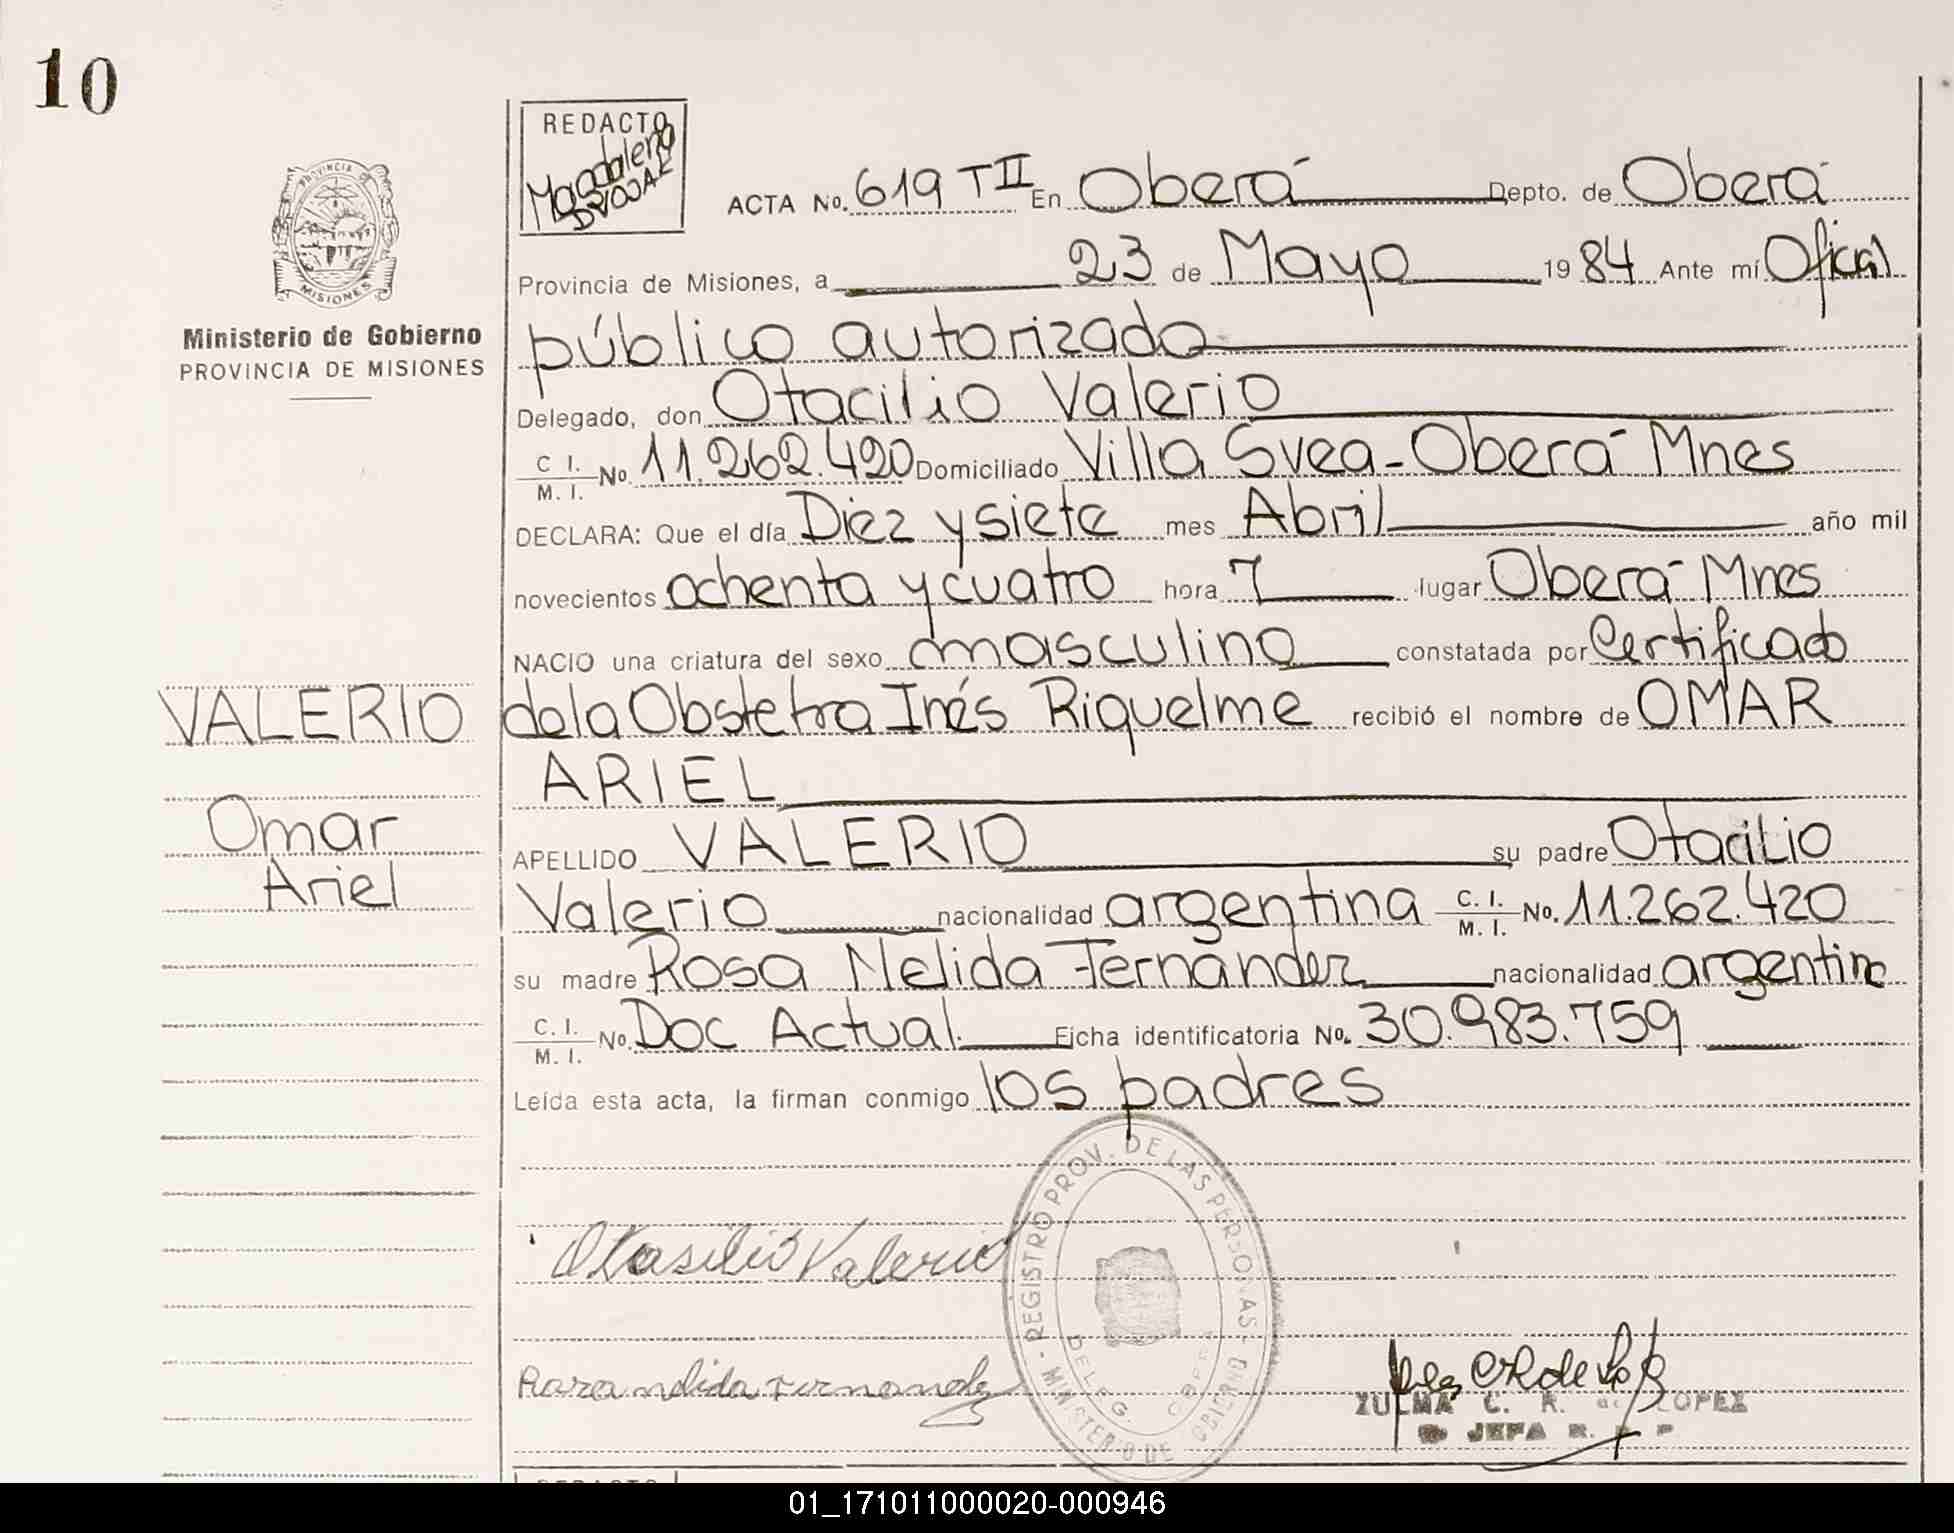 10
REDACTO
Magdalena
PROVINCIA DE
MISIONES
Ministerio de Gobierno
PROVINCIA DE MISIONES
ACTA No. 619 T II En Oberá Depto. de Oberá
Provincia de Misiones, a 23 de Mayo 19 84 Ante mí Oficial
público autorizado
Delegado, don Otacilio Valerio
C. I. / M. I. No. 11.262.420 Domiciliado Villa Svea - Oberá - Mnes
DECLARA: Que el día Diez y siete mes Abril año mil
novecientos ochenta y cuatro hora 7 lugar Oberá - Mnes
NACIO una criatura del sexo masculino constatada por Certificado
de la Obstetra Inés Riquelme recibió el nombre de OMAR
ARIEL
APELLIDO VALERIO su padre Otacilio
Valerio nacionalidad argentina C. I. / M. I. No. 11.262.420
su madre Rosa Nelida Fernández nacionalidad argentina
C. I. / M. I. No. Doc Actual. Ficha identificatoria No. 30.983.759
Leída esta acta, la firman conmigo los padres
VALERIO
Omar
Ariel
Otasilio Valerio
REGISTRO PROV. DE LAS PERSONAS - MINISTERIO DE GOBIERNO -
DELEG. OBERA
ZULMA C. R. de LOPEZ
JEFA R. P. P
REDACTO
01_171011000020-000946